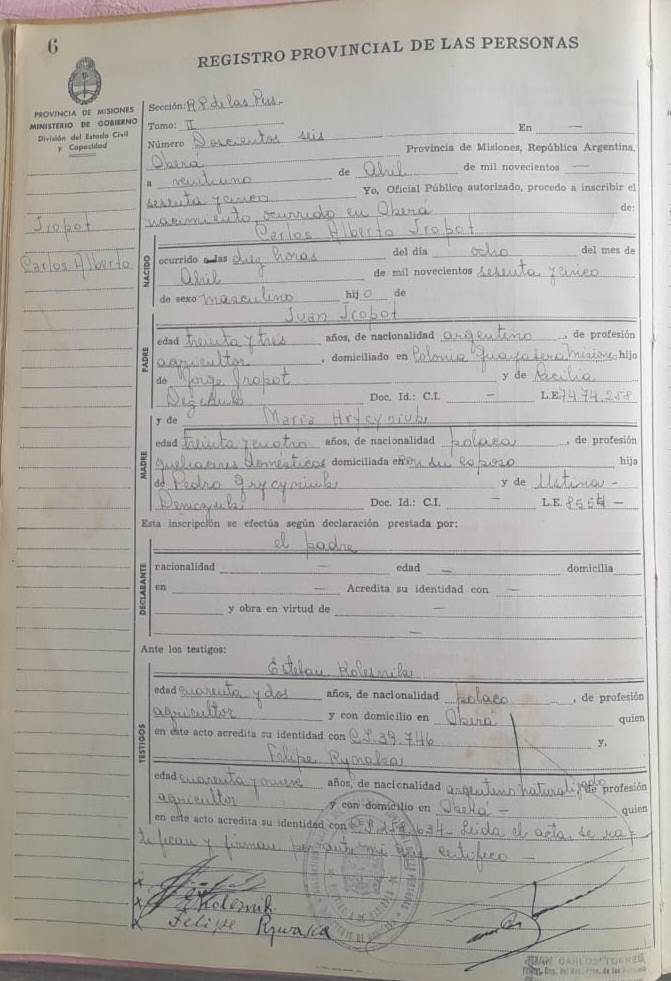 6
REGISTRO PROVINCIAL DE LAS PERSONAS
PROVINCIA DE MISIONES
MINISTERIO DE GOBIERNO
División del Estado Civil
y Capacidad
Sección: R.P. de las Pers.-
Tomo: II
Número Doscientos seis En —
Oberá Provincia de Misiones, República Argentina,
a veintiuno de Abril de mil novecientos —
sesenta y cinco Yo, Oficial Público autorizado, procedo a inscribir el
nacimiento, ocurrido en Oberá de:
Tropot
Carlos Alberto
Carlos Alberto Tropot
NACIDO
ocurrido a las diez horas del día ocho del mes de
Abril de mil novecientos sesenta y cinco
de sexo masculino hijo de
Juan Tropot
PADRE
edad treinta y tres años, de nacionalidad argentino, de profesión
agricultor, domiciliado en Colonia Guayabera Misiones hijo
de Jorge Tropot y de Cecilia
Doc. Id.: C.I. - L.E. 7474.258
y de Maria Hrycyniuk
MADRE
edad treinta y cuatro años, de nacionalidad polaca, de profesión
quehaceres domésticos domiciliada en con su esposo hija
de Pedro Grycyniuk y de Ustina -
Doc. Id.: C.I. - L.E. -
Esta inscripción se efectúa según declaración prestada por:
el padre
DECLARANTE
nacionalidad — edad — domicilia
en — Acredita su identidad con —
y obra en virtud de —
—
Ante los testigos:
Esteban Kolesnik
TESTIGOS
edad cuarenta y dos años, de nacionalidad polaco, de profesión
agricultor y con domicilio en Oberá quien
en este acto acredita su identidad con 39.746 y,
Felipe
edad cuarenta y nueve años, de nacionalidad argentino naturalizado, de profesión
agricultor y con domicilio en Oberá - quien
en este acto acredita su identidad con 634- Leida el acta se ra-
tifican y firman por ante mi que certifico —
x
x Kolesnik
x Felipe
JUAN CARLOS TORRES